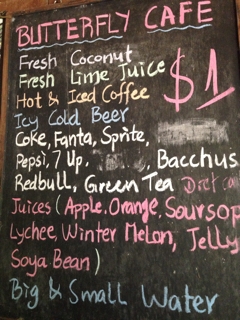 BUTTERFLY CAFE
Fresh Coconut
Fresh Lime Juice
$1
Hot & Iced Coffee
Icy Cold Beer
Coke, Fanta, Sprite,
Pepsi, 7 Up, , Bacchus
Redbull, Green Tea Diet
Juices (Apple, Orange, Soursop
Lychee, Winter Melon, Jelly
Soya Bean)
Big & Small Water